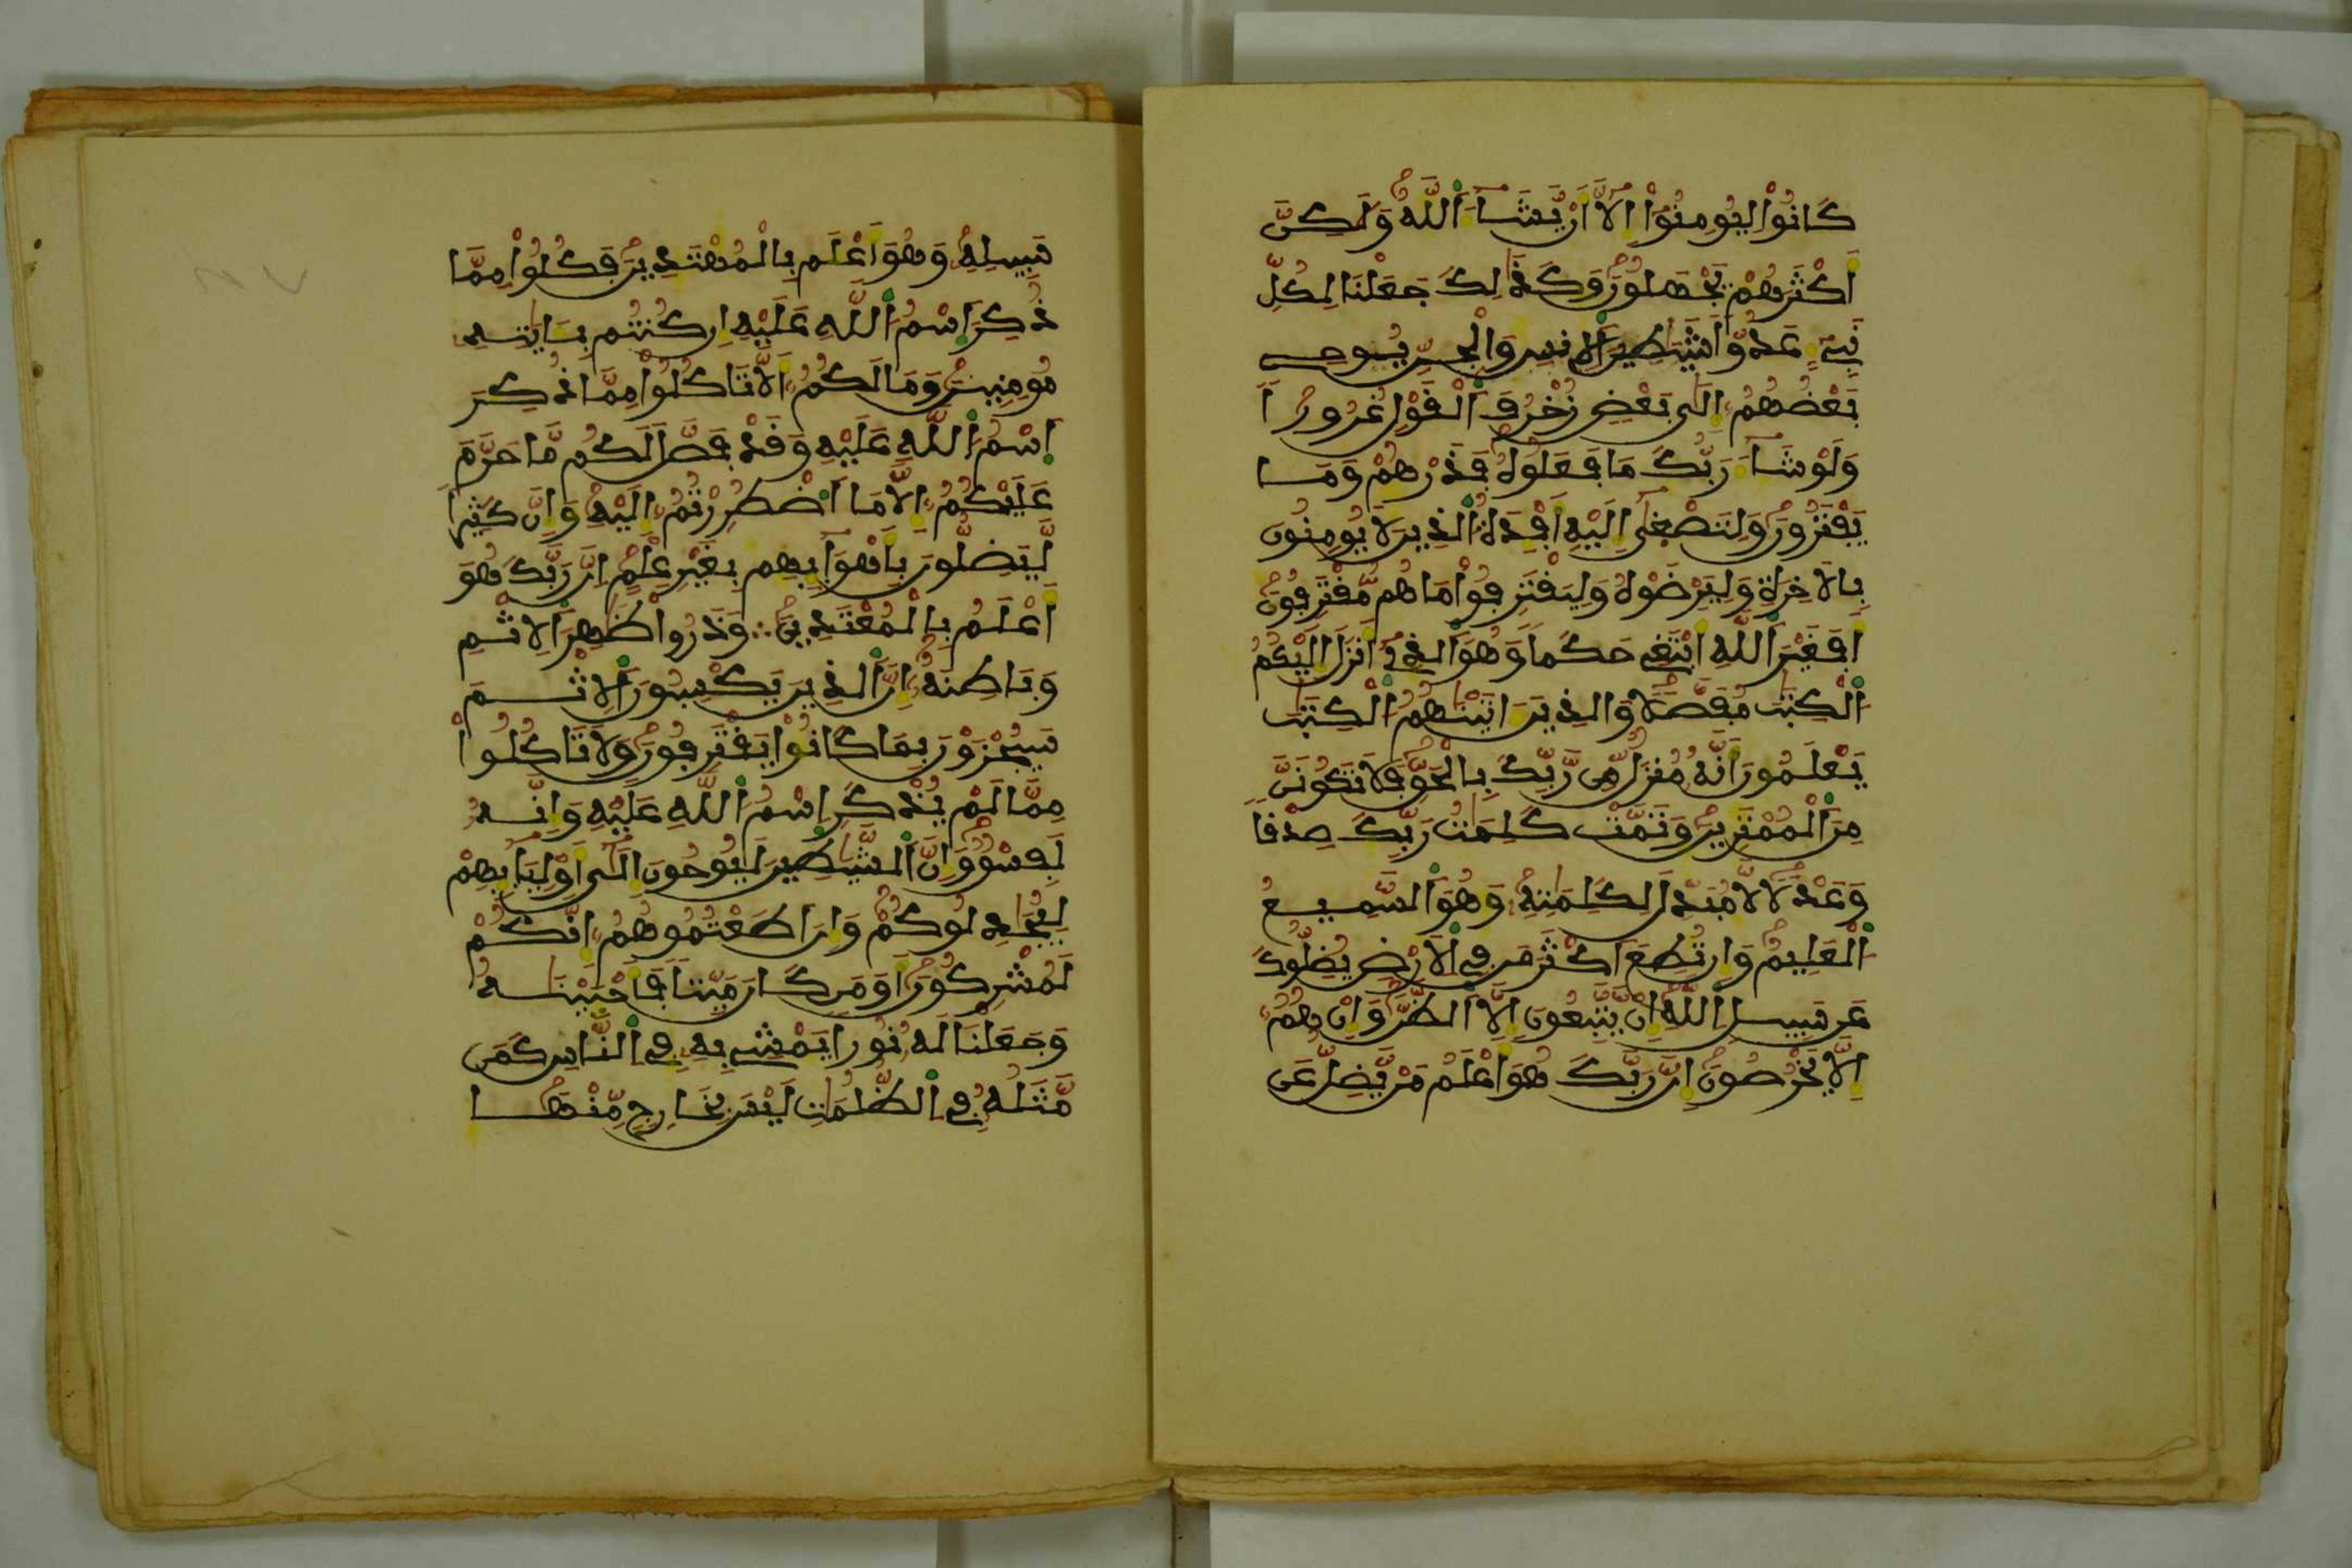 كَانُواْ لِيُومِنُوٓاْ إِلَّآ أَنْ يَّشَآءَ اَللَّهُ وَلَٰكِنَّ
أَكْثَرَهُمْ يَجْهَلُونَ وَكَذَٰلِكَ جَعَلْنَا لِكُلِّ
نَبِےٓءٍ عَدُوّاٗ شَيَٰطِينَ اَلِانسِ وَالْجِنِّ يُوحِے
بَعْضُهُمُۥٓ إِلَىٰ بَعْضٖ زُخْرُفَ اَلْقَوْلِ غُرُوراٗ
وَلَوْ شَآءَ رَبُّكَ مَا فَعَلُوهُ فَذَرْهُمْ وَمَا
يَفْتَرُونَ وَلِتَصْغ۪ىٰٓ إِلَيْهِ أَفْـِٕدَةُ اُلذِينَ لَا يُومِنُونَ
بِالَاخِرَةِ وَلِيَرْضَوْهُ وَلِيَقْتَرِفُواْ مَا هُم مُّقْتَرِفُونَ
أَفَغَيْرَ اَللَّهِ أَبْتَغِے حَكَماٗ وَهُوَ اَلذِےٓ أَنزَلَ إِلَيْكُمُ
اُلْكِتَٰبَ مُفَصَّلاٗ وَالذِينَ ءَاتَيْنَٰهُمُ اُلْكِتَٰبَ
يَعْلَمُونَ أَنَّهُۥ مُنزَلٞ مِّن رَّبِّكَ بِالْحَقِّ فَلَا تَكُونَنَّ
مِنَ اَلْمُمْتَرِينَ وَتَمَّتْ كَلِمَٰتُ رَبِّكَ صِدْقاٗ
وَعَدْلاٗ لَّا مُبَدِّلَ لِكَلِمَٰتِهِۦ وَهُوَ اَلسَّمِيعُ
اُلْعَلِيمُ وَإِن تُطِعَ اَكْثَرَ مَن فِے اِلَارْضِ يُضِلُّوكَ
عَن سَبِيلِ اِللَّهِ إِنْ يَّتَّبِعُونَ إِلَّا اَلظَّنَّ وَإِنْ هُمُۥٓ
إِلَّا يَخْرُصُونَ إِنَّ رَبَّكَ هُوَ أَعْلَمُ مَنْ يَّضِلُّ عَن
سَبِيلِهِۦ وَهُوَ أَعْلَم بِالْمُهْتَدِينَ فَكُلُواْ مِمَّا
ذُكِرَ اَسْمُ اُللَّهِ عَلَيْهِ إِن كُنتُم بِـَٔايَٰتِهِۦ
مُومِنِينَ وَمَا لَكُمُۥٓ أَلَّا تَاكُلُواْ مِمَّا ذُكِرَ
اَسْمُ اُللَّهِ عَلَيْهِ وَقَدْ فَصَّلَ لَكُم مَّا حَرَّمَ
عَلَيْكُمُۥٓ إِلَّا مَا اَضْطُرِرْتُمُۥٓ إِلَيْهِ وَإِنَّ كَثِيراٗ
لَّيَضِلُّونَ بِأَهْوَآئِهِم بِغَيْرِ عِلْمٍ إِنَّ رَبَّكَ هُوَ
أَعْلَمُ بِالْمُعْتَدِينَ وَذَرُواْ ظَٰهِرَ اَلِاثْمِ
وَبَاطِنَهُۥٓ إِنَّ اَلذِينَ يَكْسِبُونَ اَلِاثْمَ
سَيُجْزَوْنَ بِمَا كَانُواْ يَقْتَرِفُونَ وَلَا تَاكُلُواْ
مِمَّا لَمْ يُذْكَرِ اِسْمُ اُللَّهِ عَلَيْهِ وَإِنَّهُۥ
لَفِسْقٞ وَإِنَّ اَلشَّيَٰطِينَ لَيُوحُونَ إِلَىٰٓ أَوْلِيَآئِهِمْ
لِيُجَٰدِلُوكُمْ وَإِنَ اَطَعْتُمُوهُمُۥٓ إِنَّكُمْ
لَمُشْرِكُونَ أَوَمَن كَانَ مَيِّتاٗ فَأَحْيَيْنَٰهُ
وَجَعَلْنَا لَهُۥ نُوراٗ يَمْشِے بِهِۦ فِے اِلنَّاسِ كَمَن
مَّثَلُهُۥ فِے اِلظُّلُمَٰتِ لَيْسَ بِخَارِجٖ مِّنْهَا